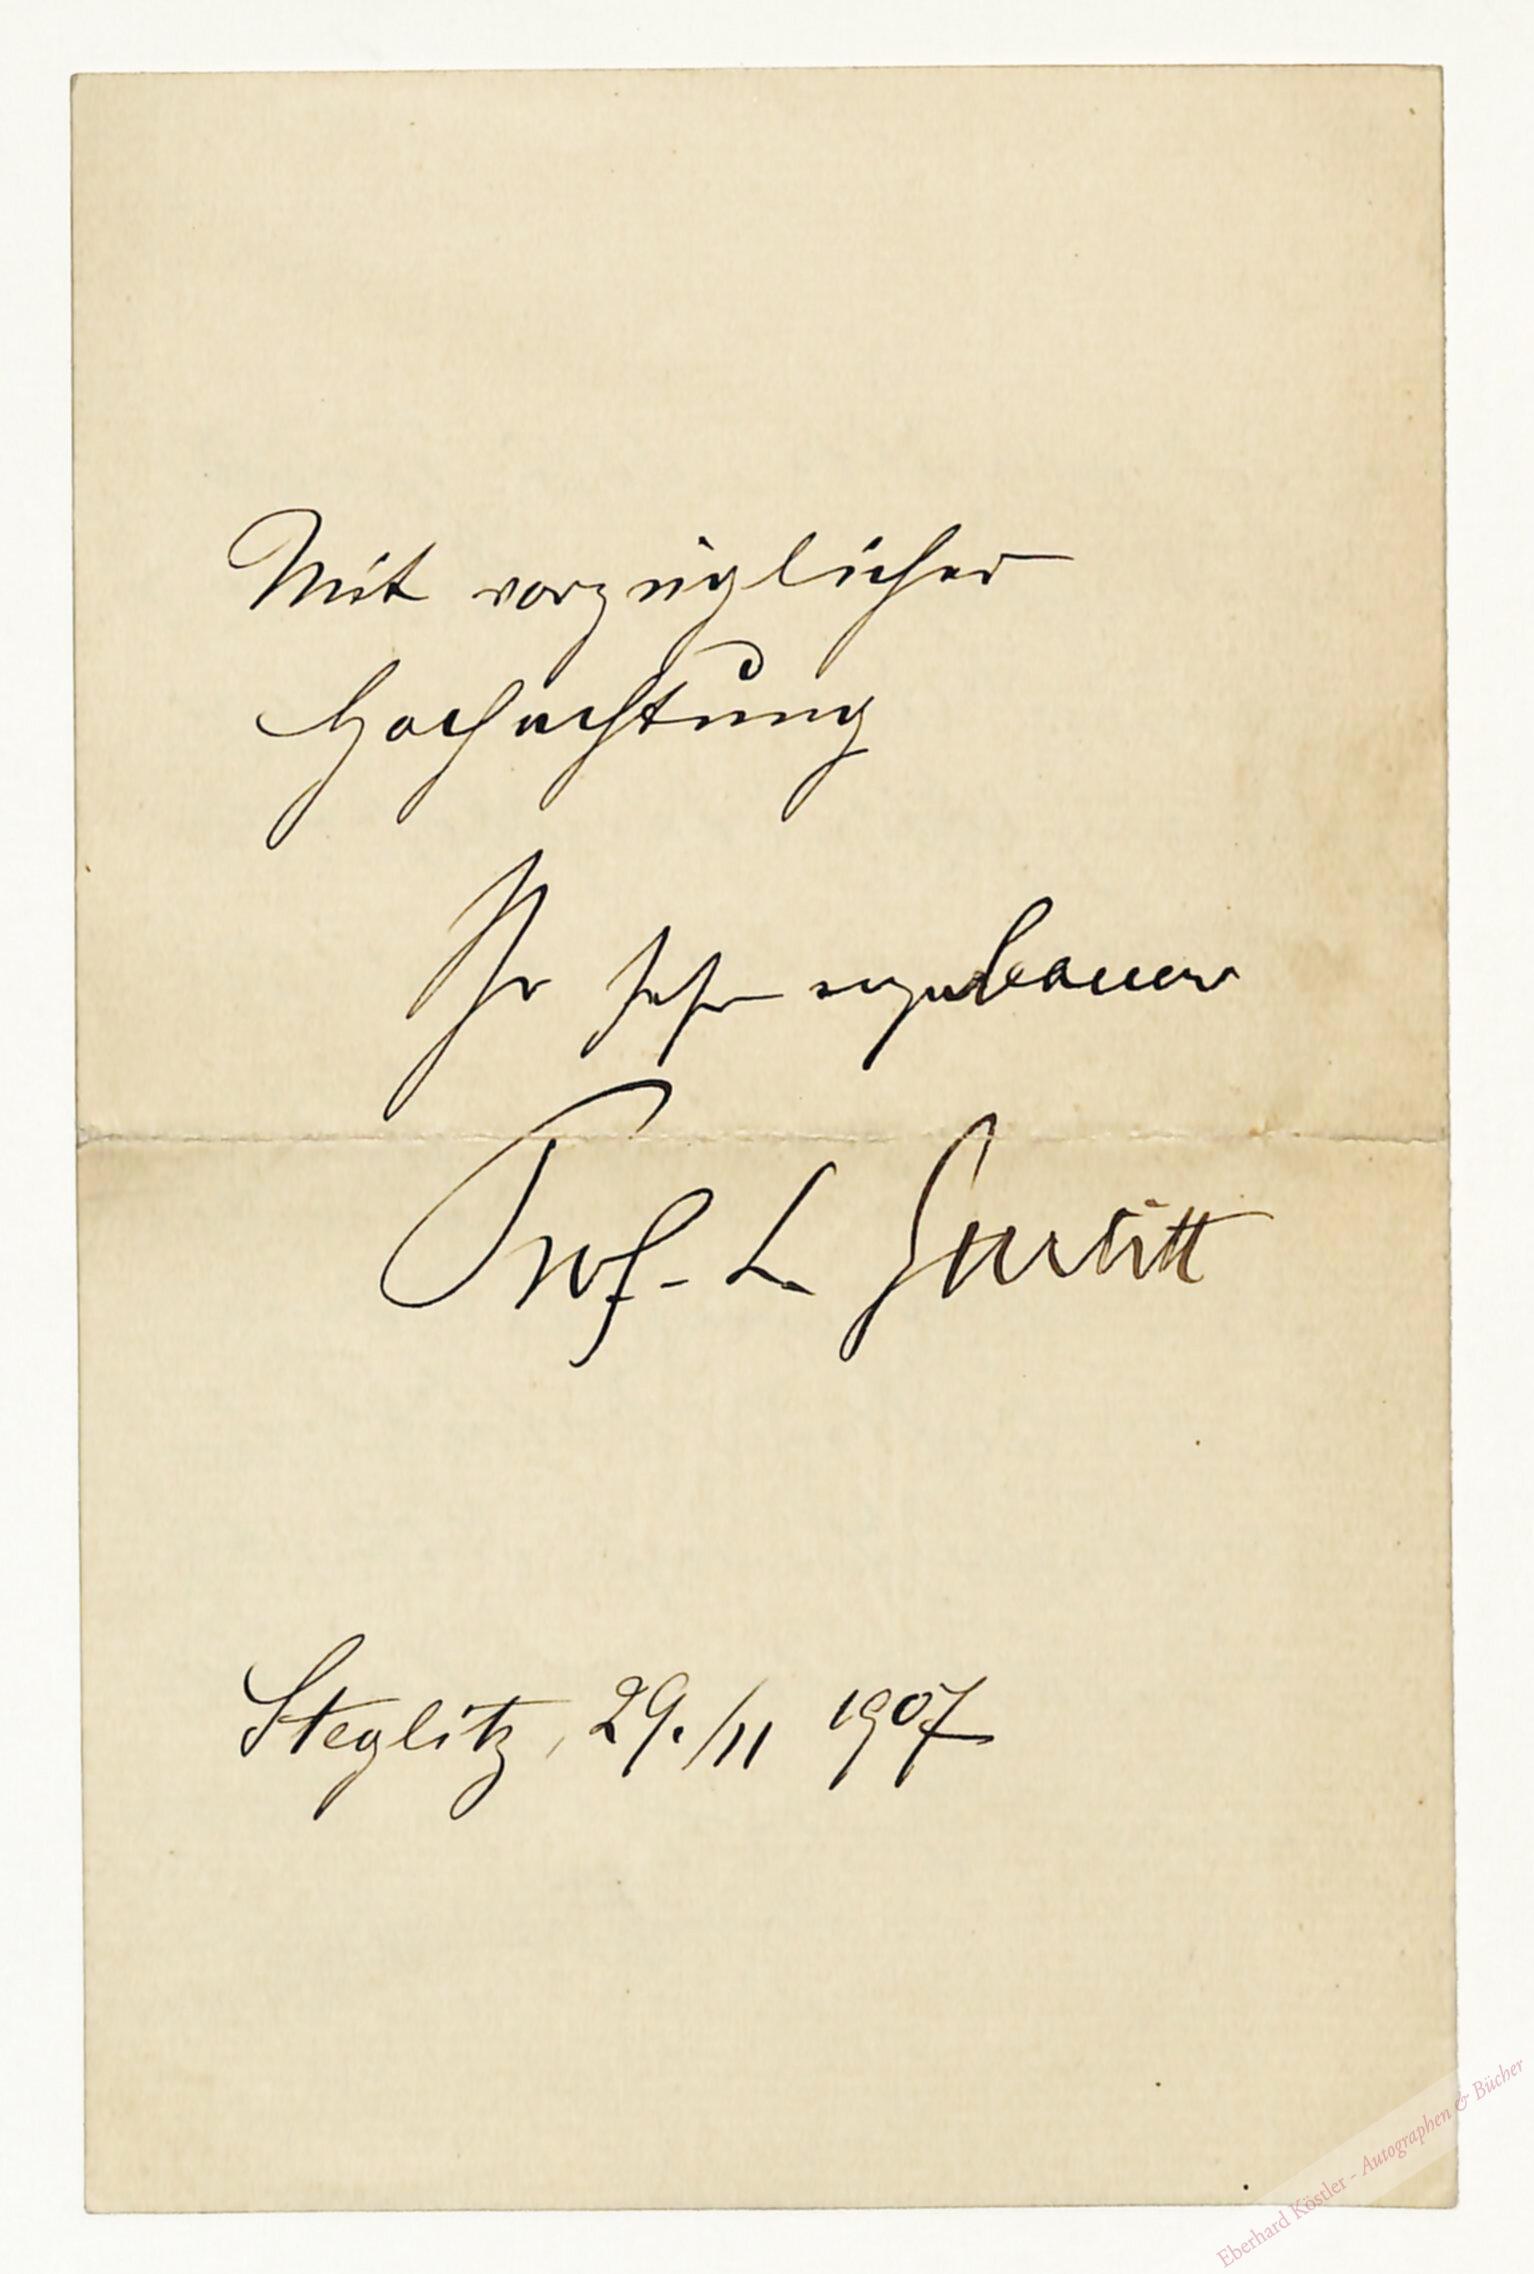 Mit vorzüglicher
Hochachtung
Ihr sehr ergebener
Prof. L Gurlitt
Steglitz, 29./11 1907
Eberhard Köstler - Autographen & Bücher